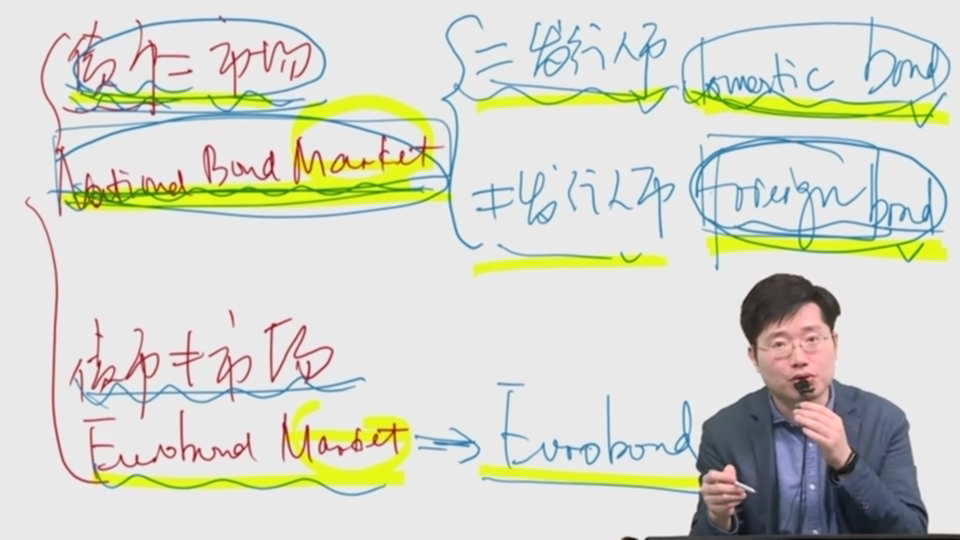 债币=市场
National Bond Market
=发行人币 Domestic bond
≠发行人币 Foreign bond
债币≠市场
Eurobond Market ⇒ Eurobond